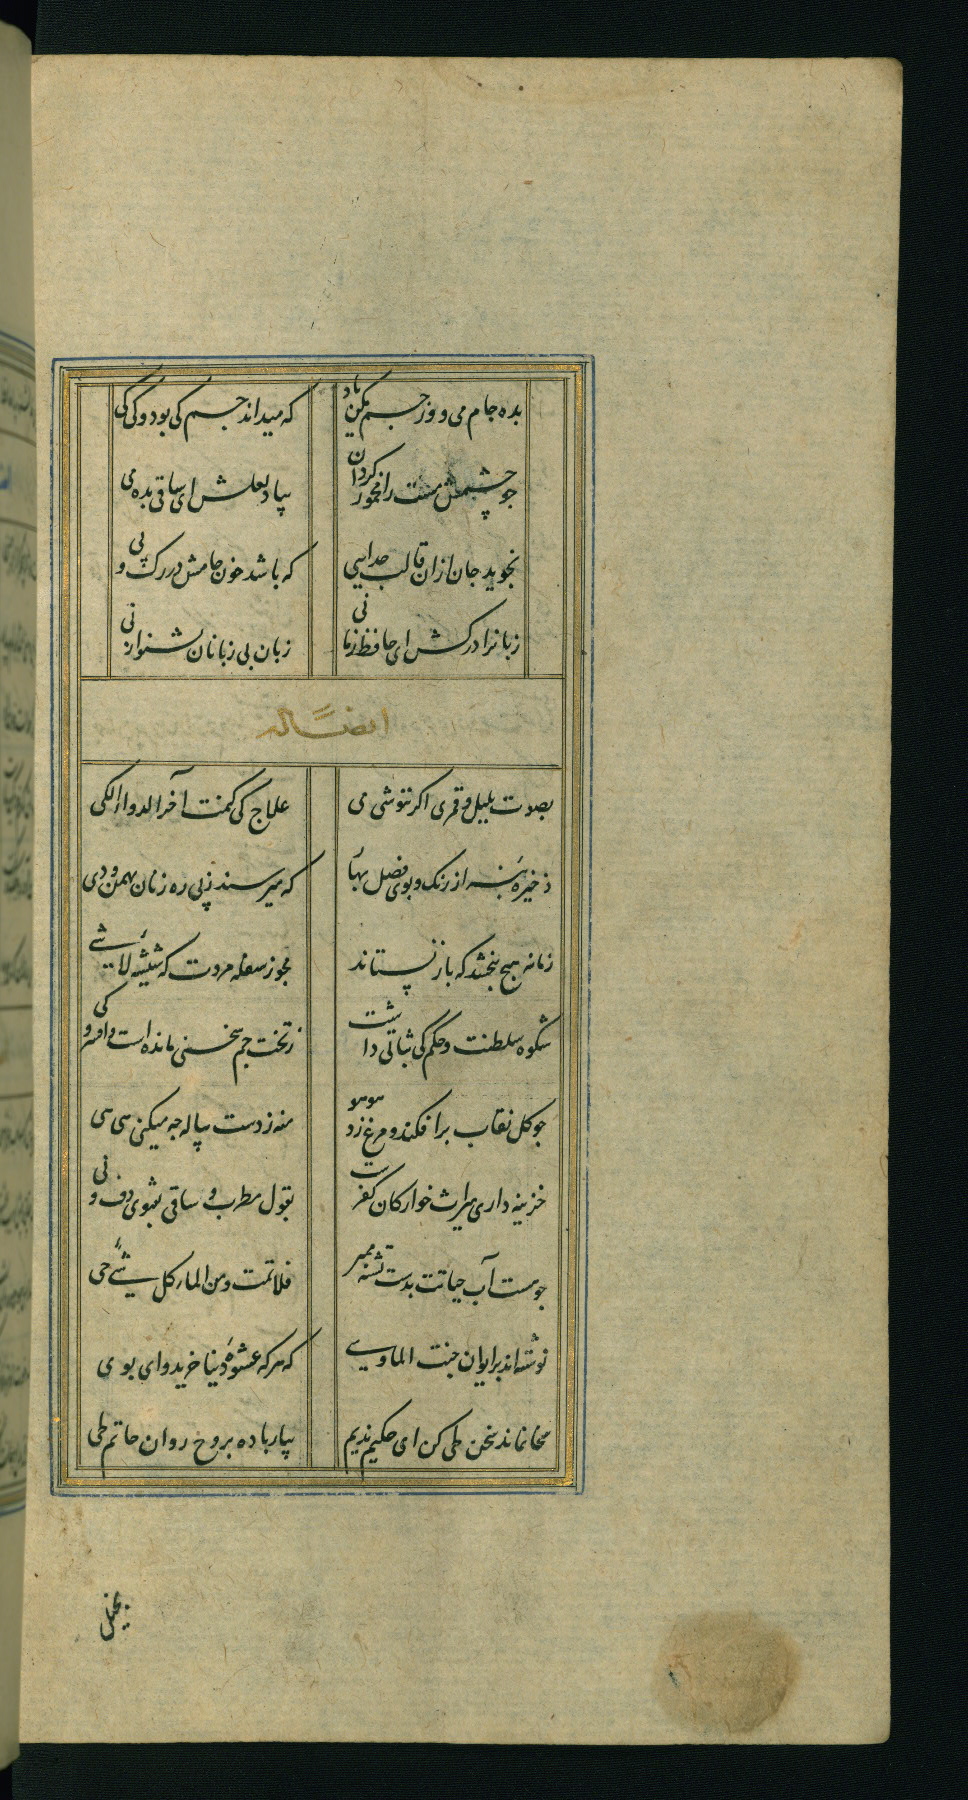 بده جام می و وز جم مکن یاد که میداند جم کی بود و کی کی
جو چشمش مست را مخمور کردان بیاد لعلش ای ساقی بده می
نجوید جان ازان قالب جدایی که باشد خون جامش در رک و پی
زبانرا درکش ای حافظ زمانی زبان بی زبانان بشنو از نی
ایضاً له
بصوت بلبل و قمری اکر ننوشی می علاج کی کنمت آخر الدواء الکی
ذخیره بنه از رنک و بوی فصل بهار که میرسند ز پی ره زنان بهمن و دی
زمانه هیچ نبخشد که باز نستاند مجو ز سفله مروت که شیئه لا شی
شکوه سلطنت و حکم کی ثباتی داشت ز تخت جم سخنی مانده است و افسر کی
جو کل نقاب برافکند و مرغ زد هو هو منه ز دست پیاله جه میکنی هی هی
خزینه داری میراث خوارکان کفرست بقول مطرب و ساقی بفتوی دف و نی
جو هست آب حیاتت بدست تشنه ممیر فلا تمت و من الماء کل شیٔ حی
نوشته اند بر ایوان جنت الماوی که هر که عشوهٔ دنیا خرید وای بوی
سخا نماند سخن طی کن ای حکیم ندیم بیار باده بروح روان حاتم طی
بخیل